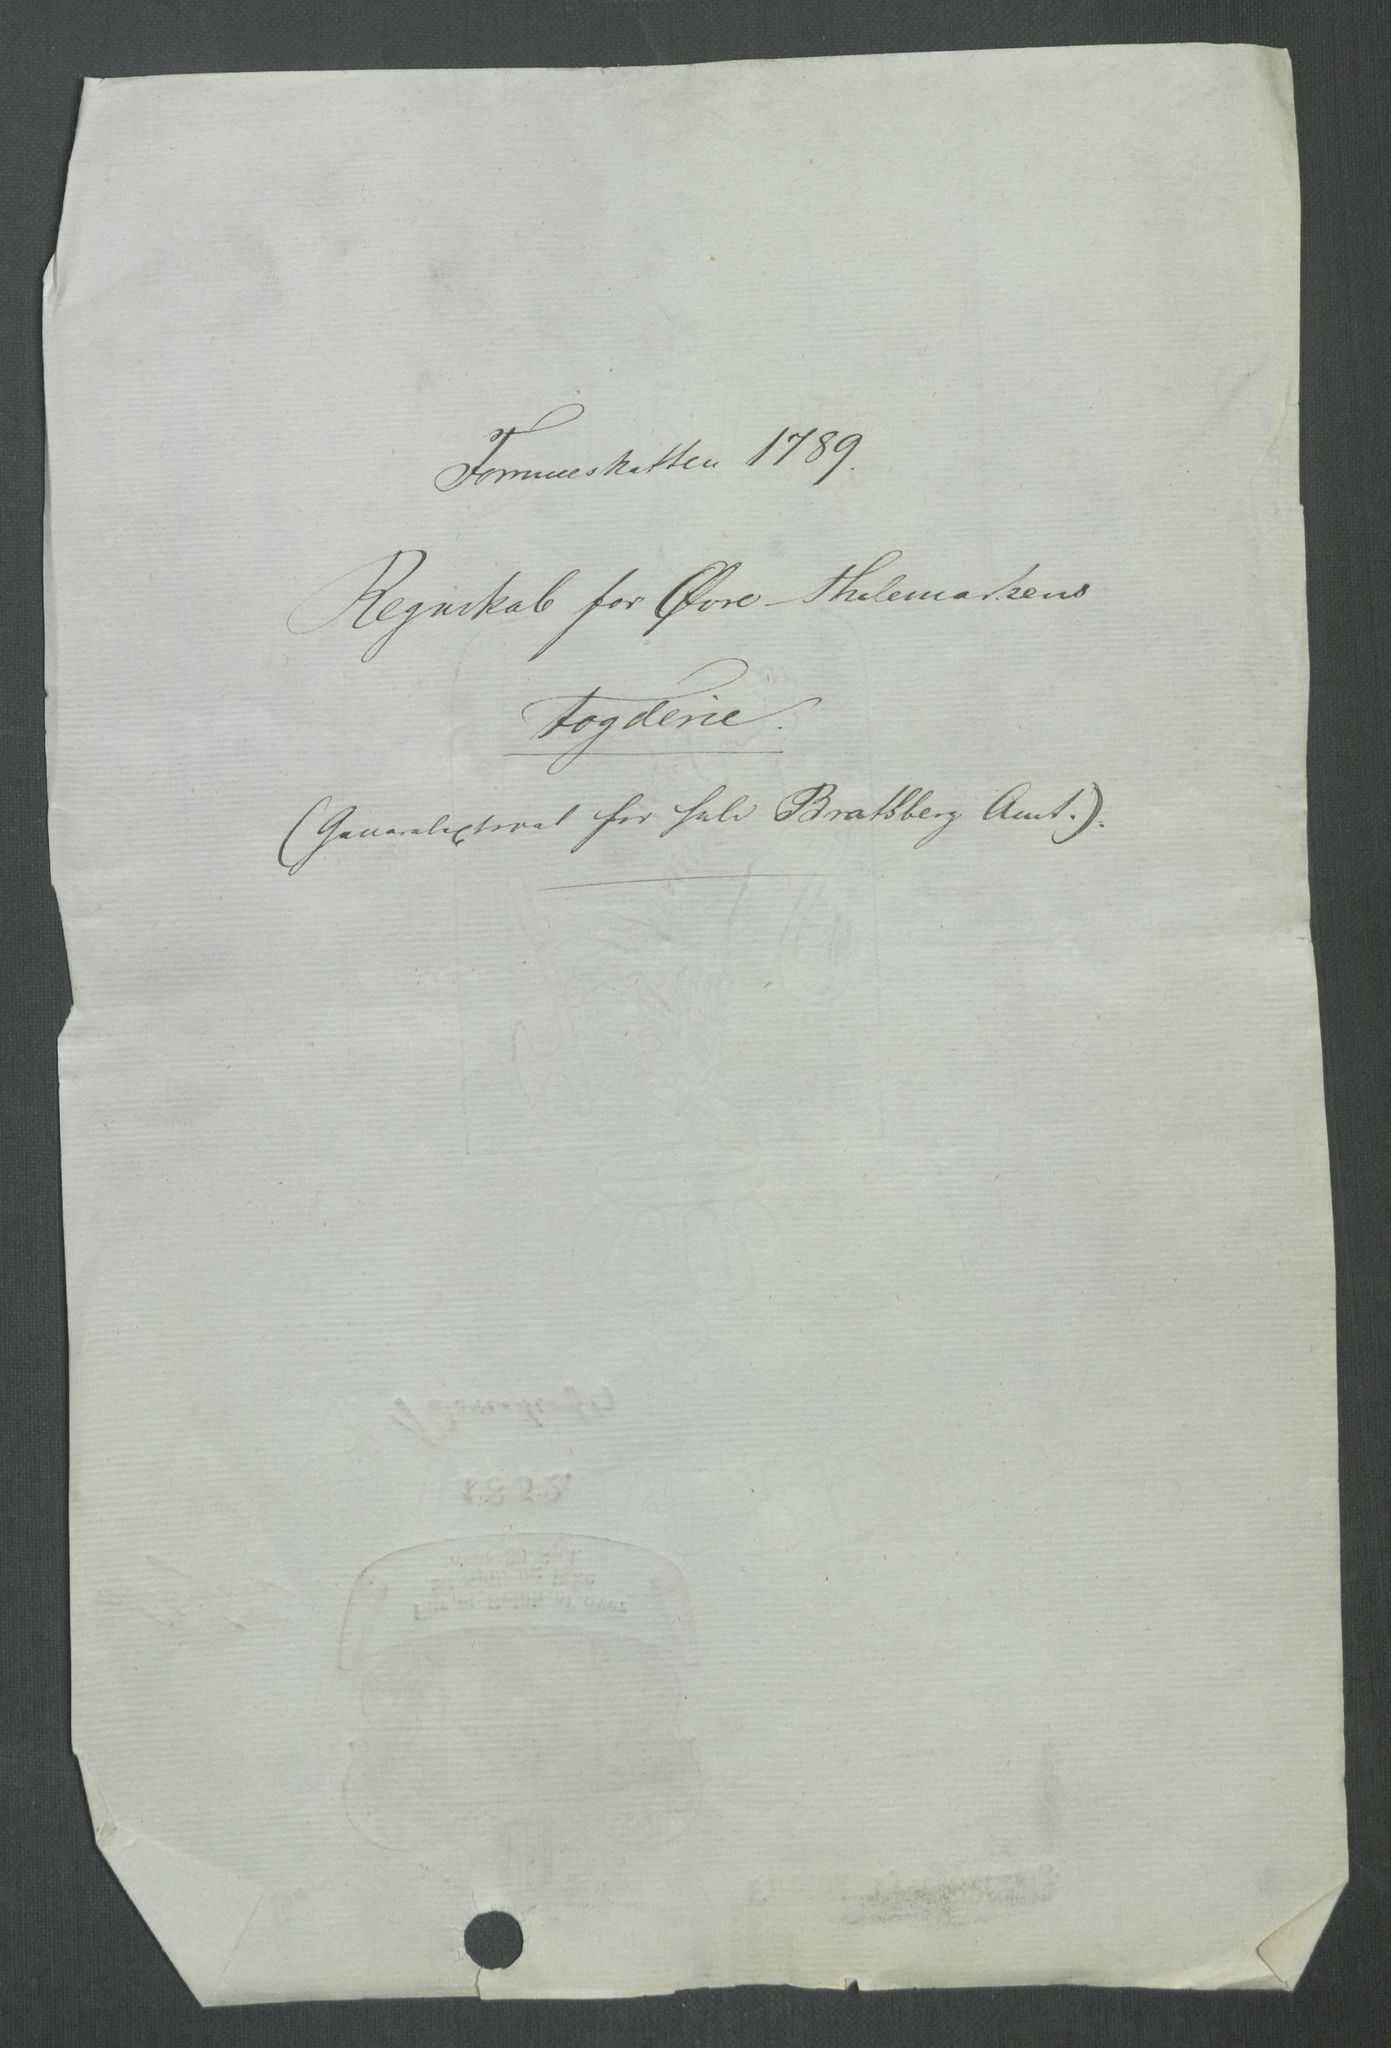 Formueskatten 1789.
Regnskab for Øvre Thelemarkens
Fogderie.
(Generalextract for hele Bratsberg Amt.).
1852.